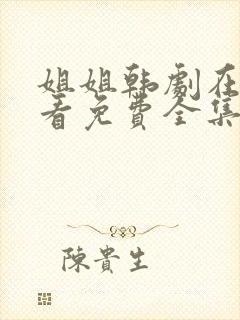 姐姐韩劇在
看免費全集
陳貴生